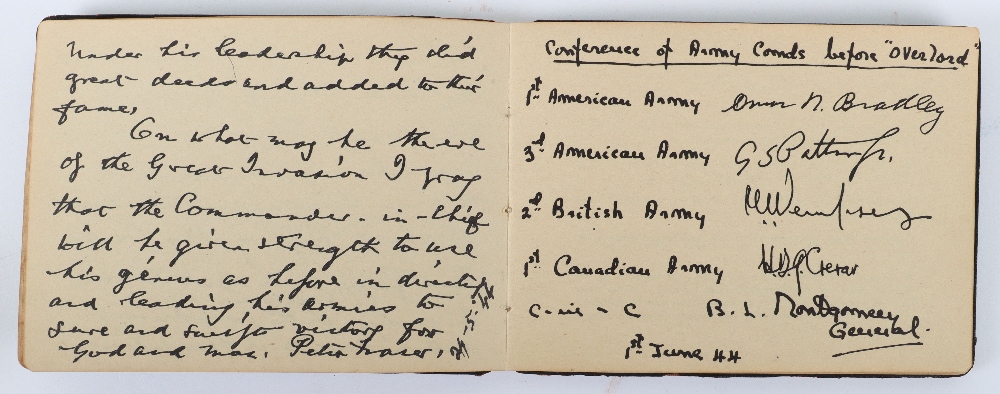 Under his leadership they did
great deeds and added to their
fame.
On what may be the eve
of the Great Invasion I pray
that the Commander-in-Chief
will be given strength to use
his genius as before in directing
and leading his armies to
sure and swift victory for
God and man. Peter Fraser.
Conference of Army Comds before "Overlord"
1st American Army Omar N. Bradley
3rd American Army G S Patton Jr.
2nd British Army M Dempsey
1st Canadian Army H.D.G. Crerar
C-in-C B. L. Montgomery
General.
1st June 44